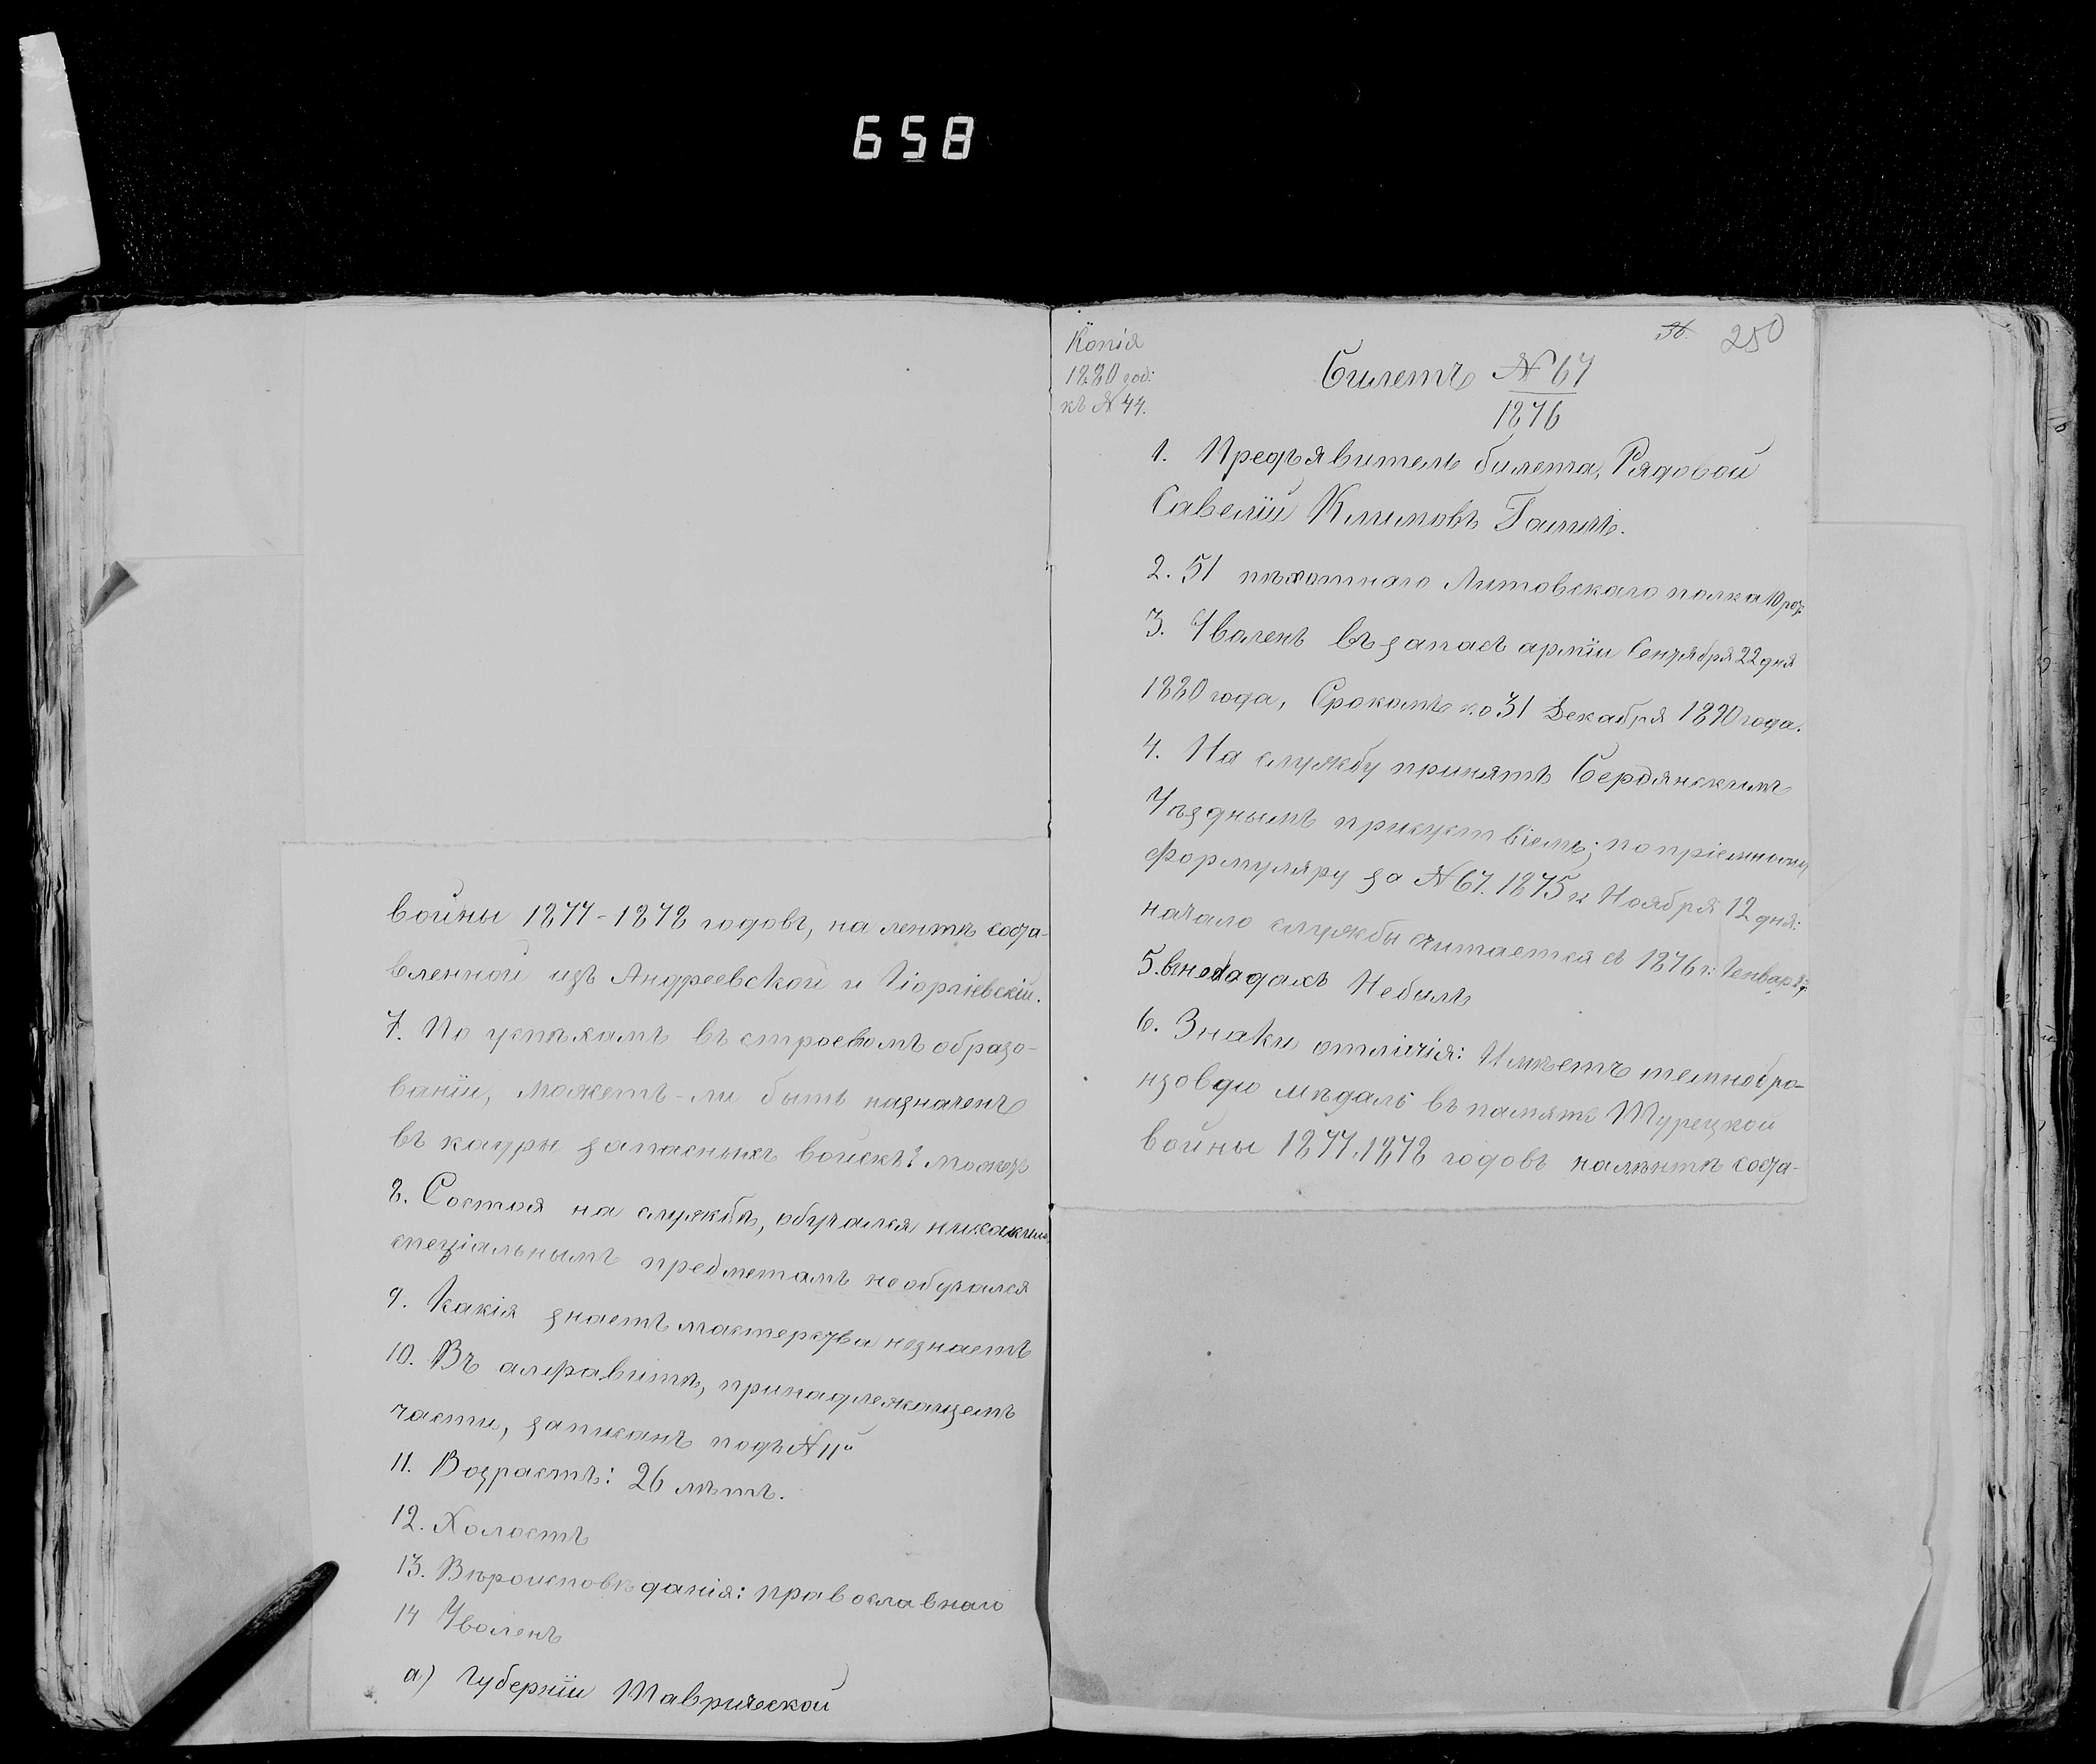 658
войны 1877-1878 годовъ, на лентѣ соста-
вленной изъ Андреевской и Гіоргіевскій.
7. По успѣхамъ въ строевомъ образо-
ваніи, можетъ-ли быть назначенъ
въ кадры запасныхъ войскъ? можетъ
8. Состоя на службѣ, обучался никакимъ
спеціальнымъ предметамъ необучался
9. Какія знаетъ мастерства незнаетъ
10. Въ алфавитѣ, принадлежащемъ
части, записанъ подъ № 11й
11. Возрастъ: 26 лѣтъ.
12. Холостъ
13. Вѣроисповѣданія: православнаго
14 Уволенъ
а) Губерніи Таврической
Копія
1880 год:
къ №
36. 250
Билетъ № 67
1876
1. Предъявитель билета, Рядовой
Савелій Климовъ
2. 51 пѣхотнаго Литовскаго полка 10 рот.
3. Уволенъ въ запасъ арміи Сентября 22 дня
1880 года, Срокомъ по 31 Декабря 1890 года.
4. На службу принятъ Бердянскимъ
Уѣзднымъ присуствіемъ; по пріемному
формуляру за № 67. 1875 г. Ноября 12 дня:
начало службы считается съ 1876 г: Генваря
5. Внеходахъ Небылъ
6. Знаки отличія: Имѣетъ темнобро-
нзовую мѣдаль въ память Турецкой
войны 1877.1878 годовъ налѣнтѣ соста-